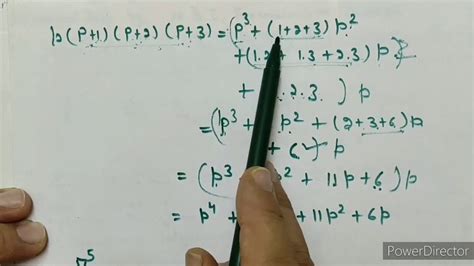 p(p+1)(p+2)(p+3) = (p³ + (1+2+3)p²
+(1.2 + 1.3 + 2.3) p
+ .2.3. ) p
= (p³ + p² + (2+3+6) p
+ 6 ) p
= (p³ + p² + 11p + 6) p
= p⁴ + + 11p² + 6p
5
PowerDirector